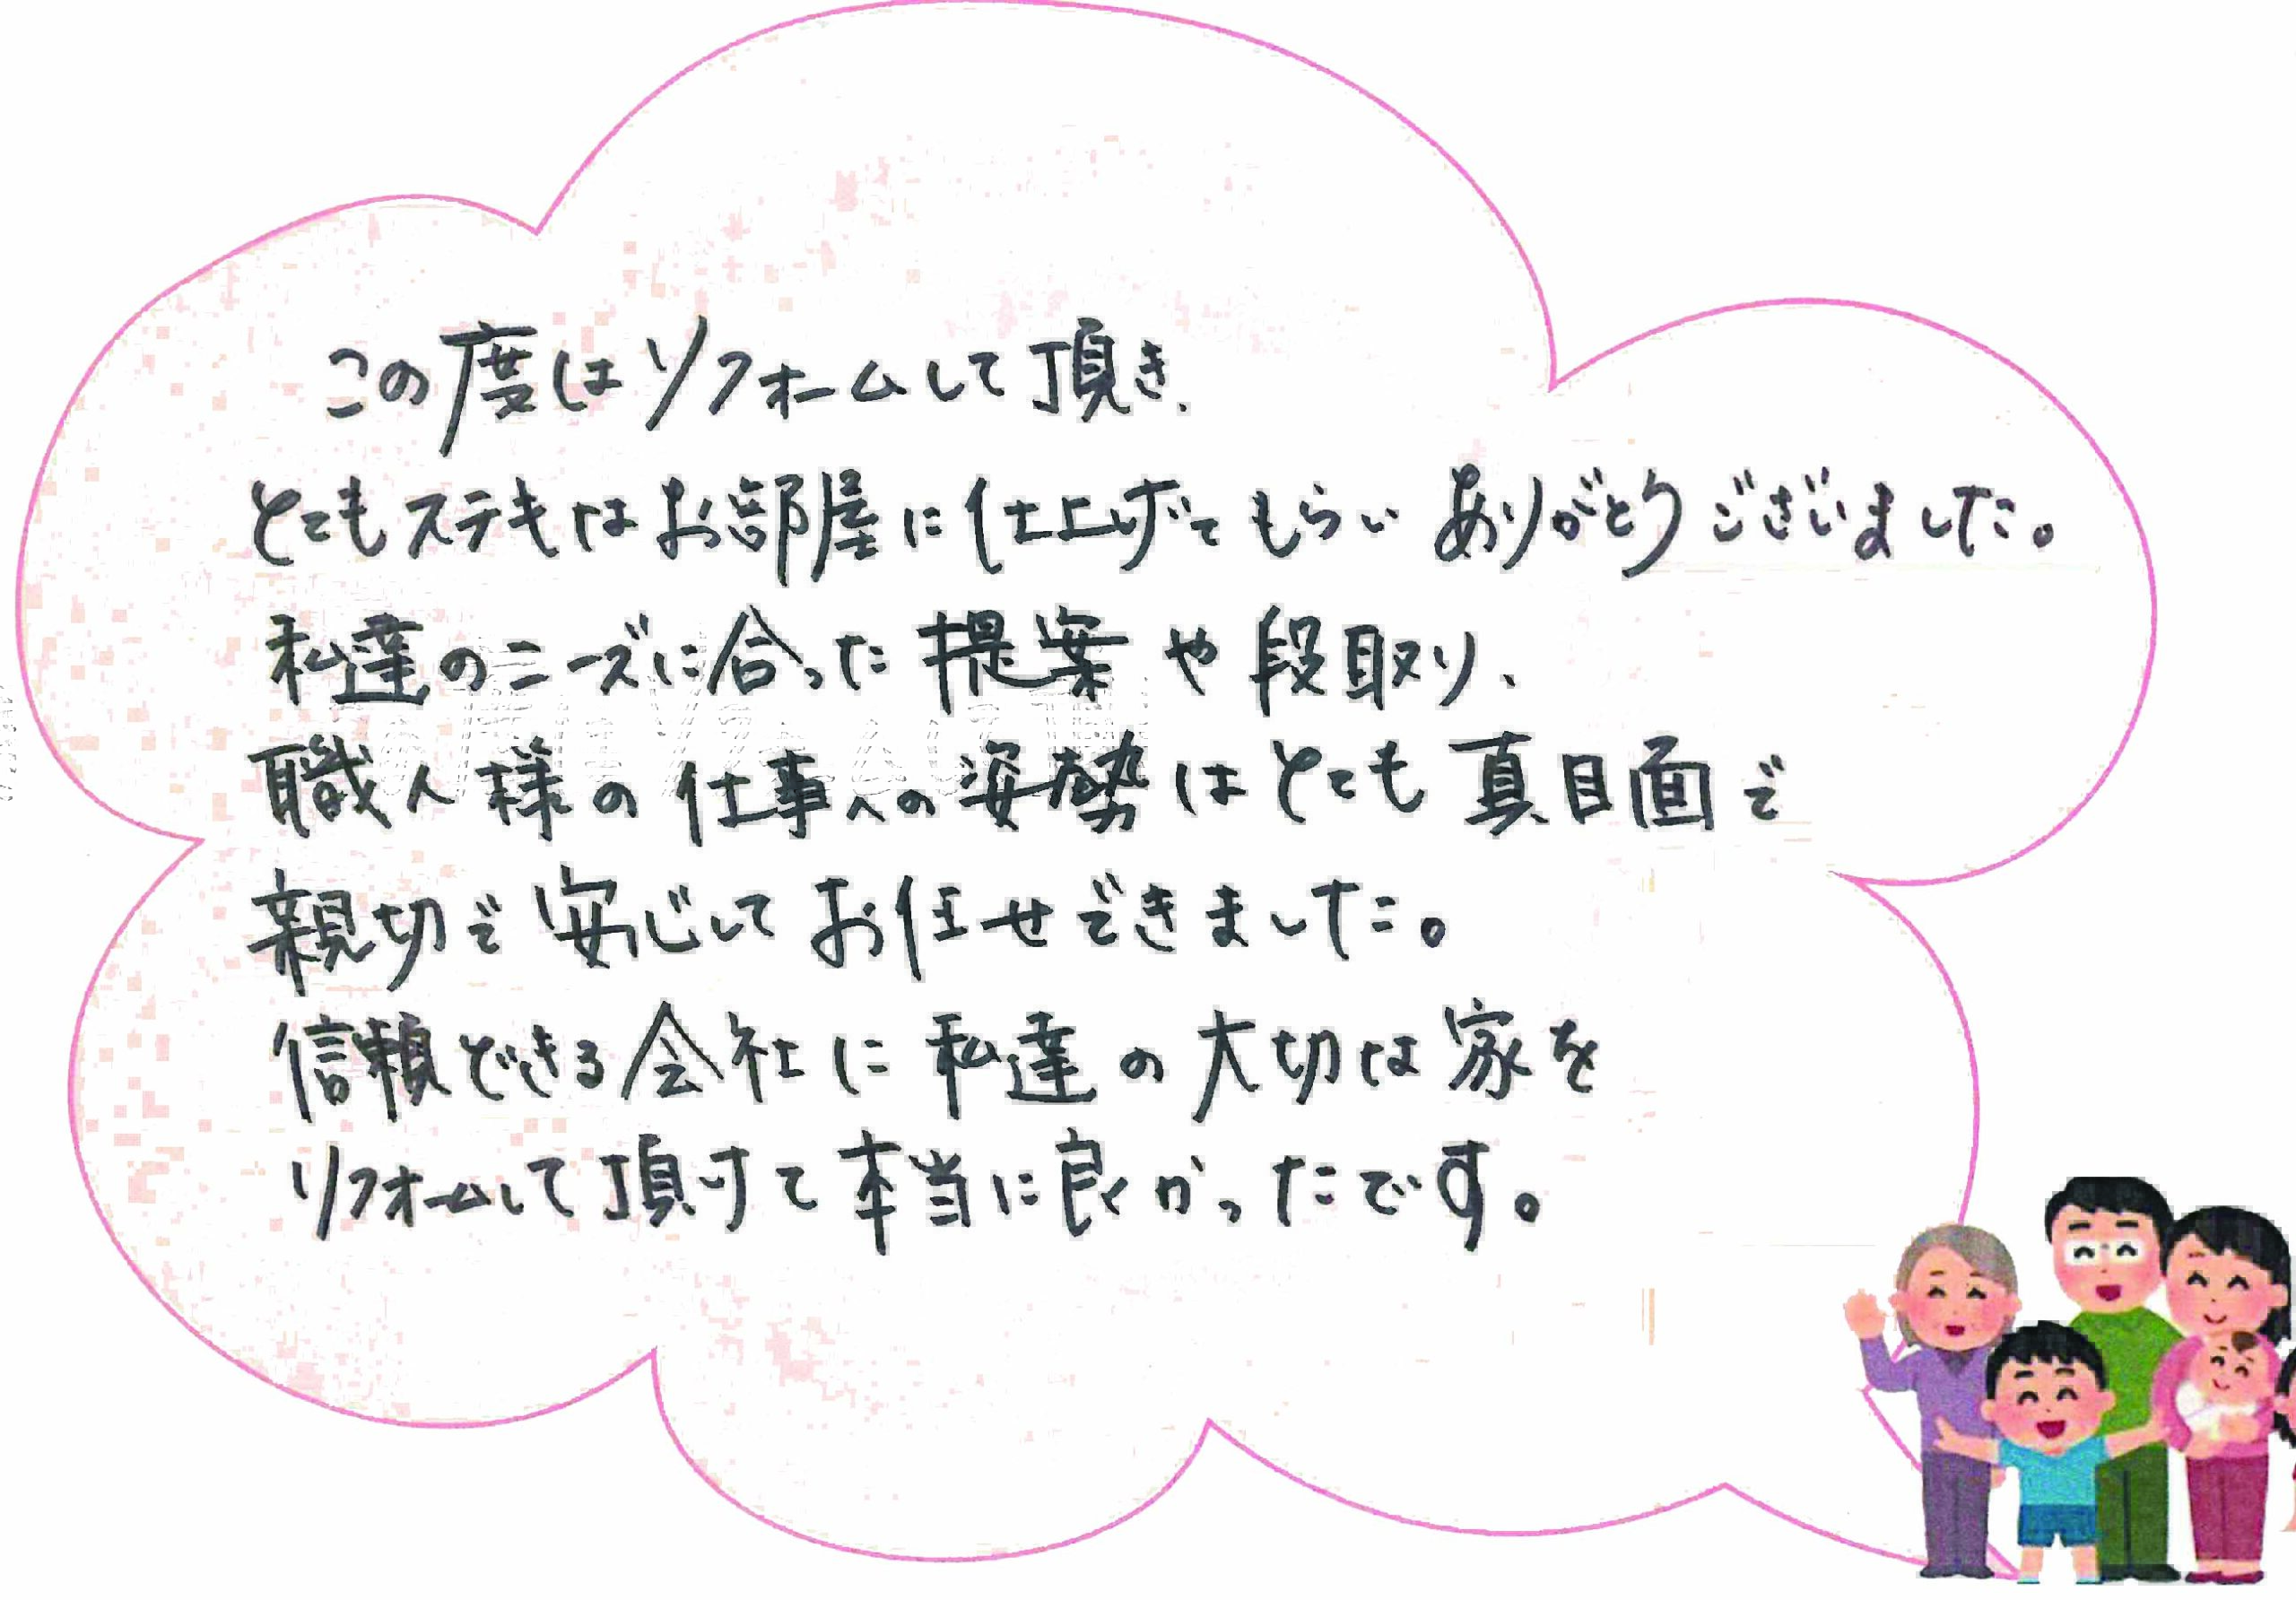 この度はリフォームして頂き、
とてもステキなお部屋に仕上げてもらい ありがとうございました。
私達のニーズに合った 提案 や 段取り、
職人様の仕事への姿勢はとても真目面で
親切で安心してお任せできました。
信頼できる会社に私達の大切な家を
リフォームして頂けて本当に良かったです。